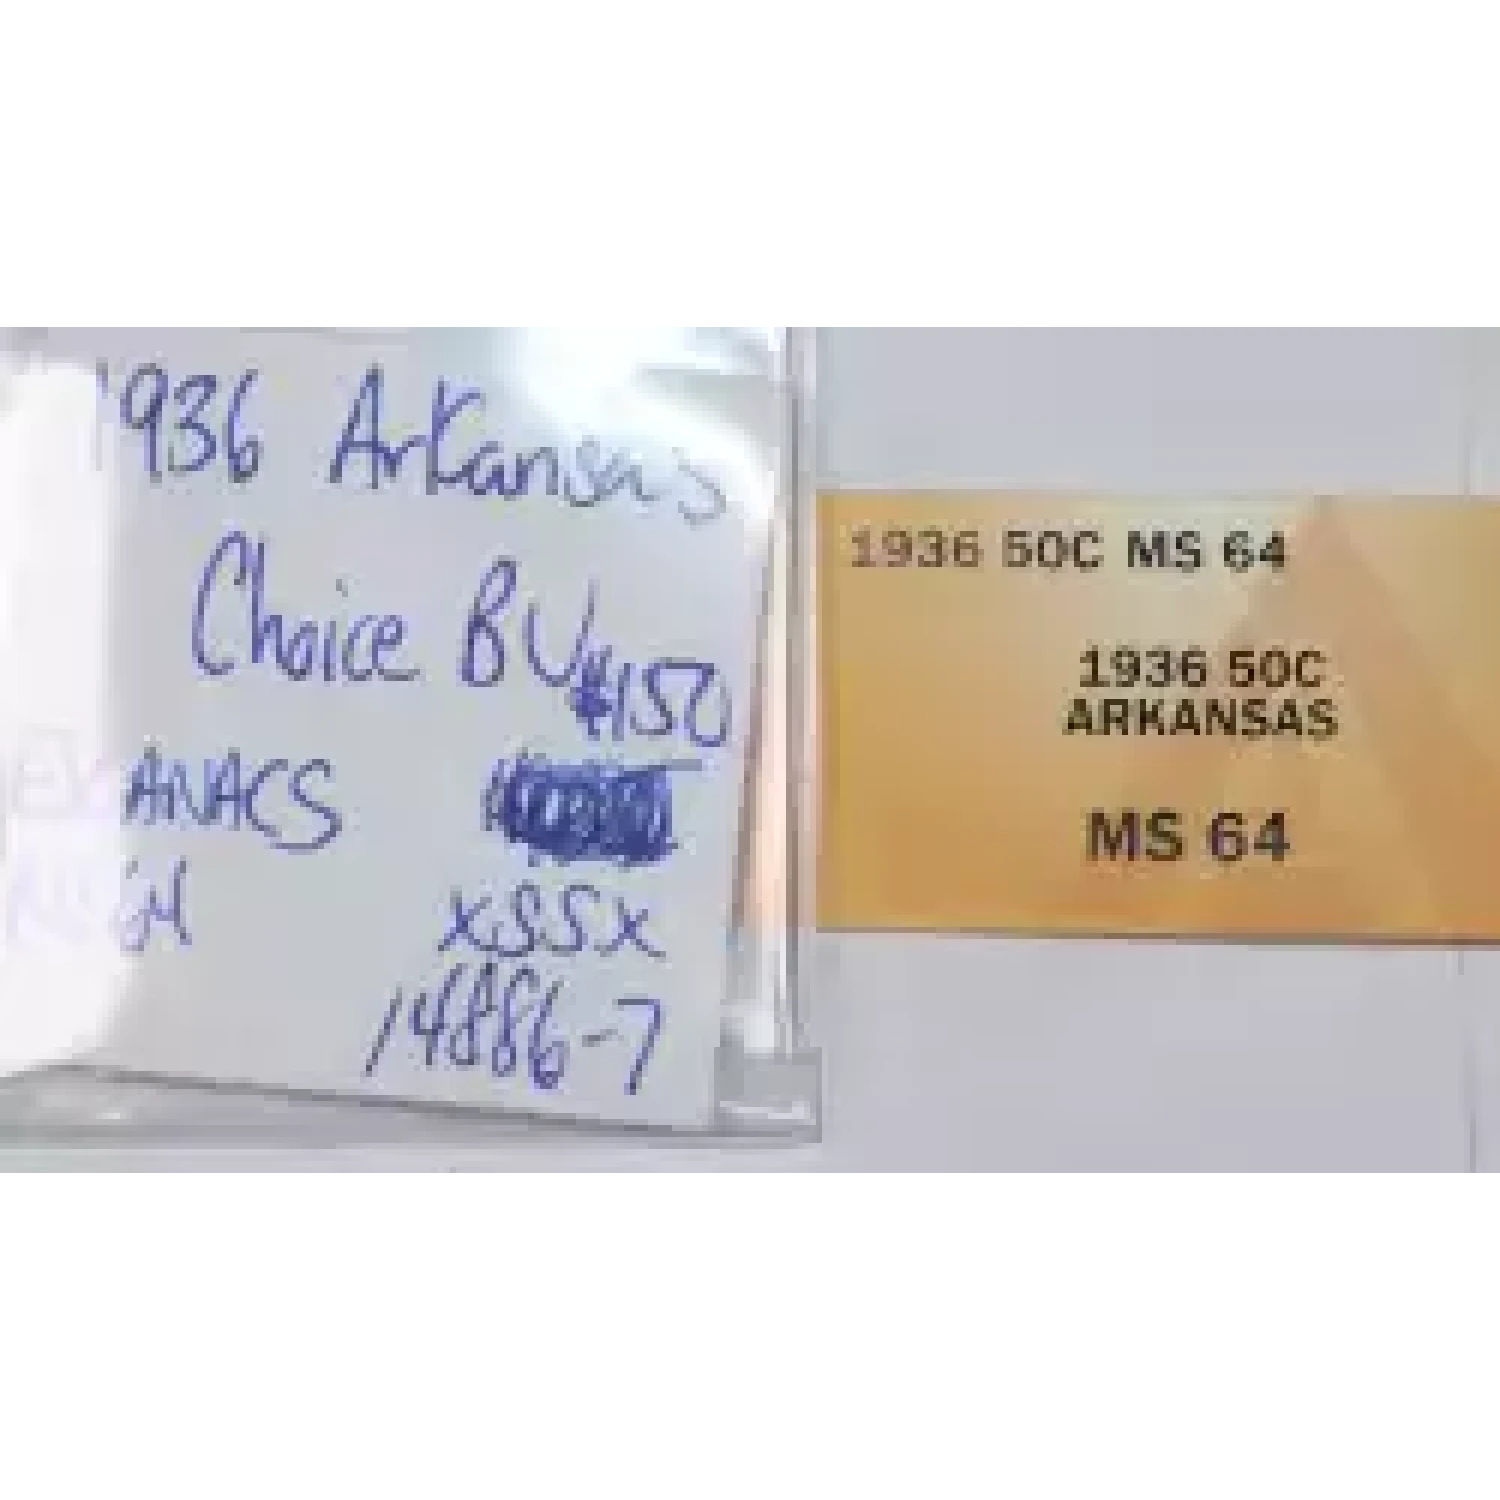 1936 Arkansas
Choice BU
$150
ANACS
64
xssx
14886-7
1936 50C MS 64
1936 50C
ARKANSAS
MS 64